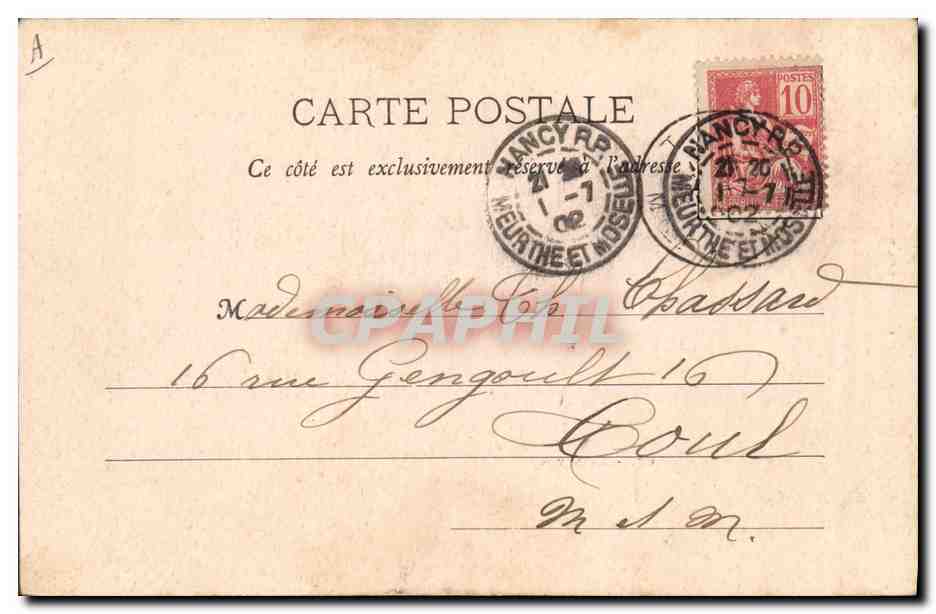 A
POSTES
10
CARTE POSTALE
Ce côté est exclusivement réservé à l'adresse
NANCY R.P.
21
1 -7
02
MEURTHE ET MOSELLE
NANCY R.P.
21 20
1 -7
02
MEURTHE ET MOSELLE
Mademoiselle Th Chassard
CPAPHIL
16 rue Gengoult 16
Toul
M et M.